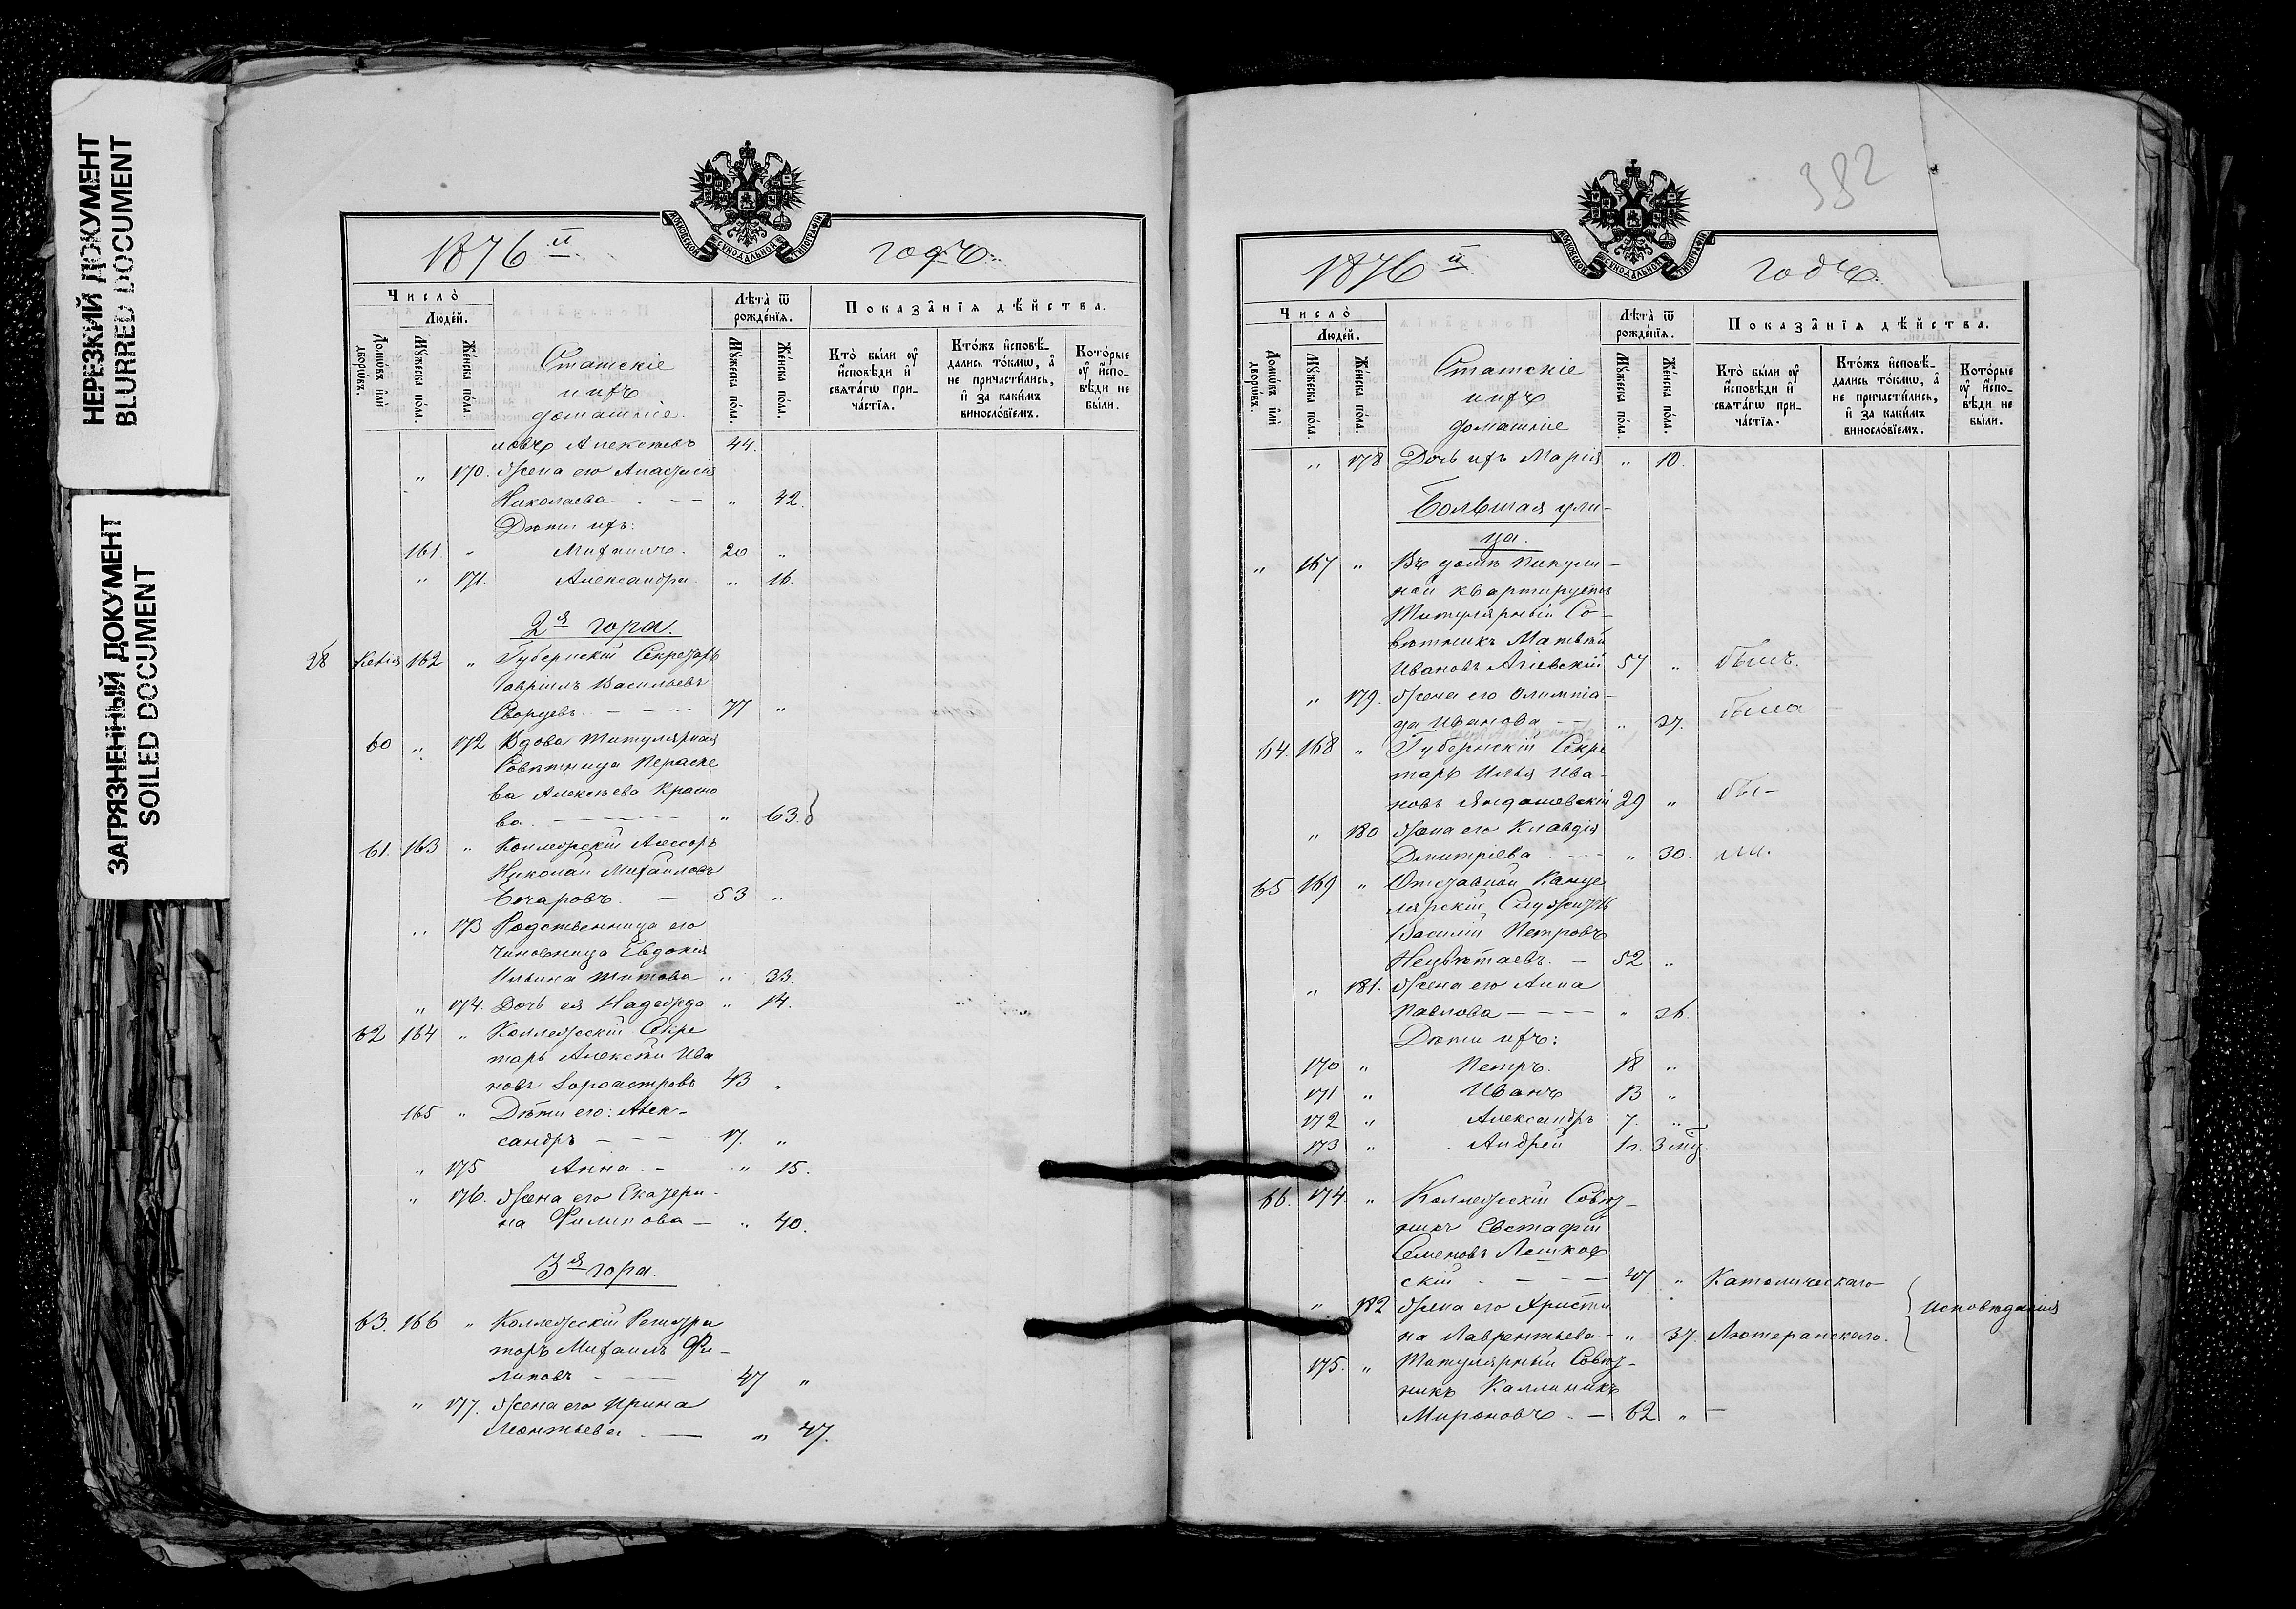 НЕРЕЗКИЙ ДОКУМЕНТ
BLURRED DOCUMENT
ЗАГРЯЗНЕННЫЙ ДОКУМЕНТ
SOILED DOCUMENT
МОСКОВСКОЙ СѴНОДАЛЬНОЙ ТИПОГРАФІИ
1876й годъ.
Число̀
Людéй.
Лѣта̀ ѿ рождéнїѧ.
Показа̂нїѧ дѣ́йства.
Домѡ́въ и҆лѝ дворѡ́въ.
Мꙋ́жеска по́ла.
Же́нска по́ла.
Статскіе
ихъ
домашніе.
Мꙋ́жеска по́ла.
Же́нска по́ла.
Кто̀ бы́ли ᲂу҆ и҆сповѣди и҆ свѧта́гѡ причáстїѧ.
Кто́жъ и҆сповѣ́дались то́кмѡ, а҆ не причасти́лись, и҆ за каки́мъ винословїемъ.
Кото́рые ᲂу҆ и҆сповѣди не бы́ли.
ловъ Алексѣевъ 44.
„ 170. Жена его Анастасія
Николаева „ 42.
Дѣти ихъ:
161 „ Михаилъ. 20 „
„ 171. Александра „ 16.
2я гора.
28 162 „ Губернскій Секретарь
Гавріилъ Васильевъ
Скорцевъ 77 „
60 „ 172 Вдова Титулярная
Совѣтница Параске
ва Алексѣева Красно
ва „ 63.
61. 163 „ Коллежскій Ассесоръ
Николай Михайловъ
Бочаровъ. 53 „
„ 173 Родственница его
чиновница Евдокія
Ильина Титова „ 33.
„ 174. Дочь ея Надежда „ 14.
62 164 „ Коллежскій Секре
тарь Алексѣй Ива
новъ Зороастровъ 43 „
165 „ Дѣти его: Алек-
сандръ 17. „
„ 175 Анна. „ 15.
„ 176. Жена его Екатери-
на Филипова „ 40.
3я гора.
63. 166 „ Коллежскій Регистра
торъ Михаилъ Фи-
липовъ 47 „
„ 177. Жена его Ирина
Леонтьева „ 47.
382
МОСКОВСКОЙ СѴНОДАЛЬНОЙ ТИПОГРАФІИ
1876й годъ.
Число̀
Людéй.
Лѣта̀ ѿ рождéнїѧ.
Показа̂нїѧ дѣ́йства.
Домѡ́въ и҆лѝ дворѡ́въ.
Мꙋ́жеска по́ла.
Же́нска по́ла.
Статскіе
ихъ
домашніе
Мꙋ́жеска по́ла.
Же́нска по́ла.
Кто̀ бы́ли ᲂу҆ и҆сповѣди и҆ свѧта́гѡ причáстїѧ.
Кто́жъ и҆сповѣ́дались то́кмѡ, а҆ не причасти́лись, и҆ за каки́мъ винословїемъ.
Кото́рые ᲂу҆ и҆сповѣди не бы́ли.
„ 178 Дочь ихъ Марія „ 10.
Большая ули-
ца.
„ 167 „ Въ домѣ Пикули-
ной квартируетъ
Титулярный Со-
вѣтникъ Матвѣй
Ивановъ Агіевскій 57 „ былъ.
„ 179. Жена его Олимпіа-
да Иванова „ 37. была
64. 168 „ Губернскій Секре
тарь Илья Ива-
новъ 29 „ бы-
„ 180 Жена его Клавдія
Дмитріева „ 30. ли.
65 169 „ Отставной Канце
лярскій Служитель
Василій Петровъ
Нецвѣтаевъ. 52 „
„ 181. Жена его Анна
Павлова „ 36.
Дѣти ихъ:
170 „ Петръ. 18 „
171 „ Иванъ 13 „
172 „ Александръ 7. „
173 „ Андрей 1г. 3 мц.
66. 174. „ Коллежскій Совѣт-
никъ Евстафій
Семеновъ Лешков
скій 47 „ Католическаго
„ 182 Жена его Христи
на Лаврентьева „ 37. Лютеранскаго.
исповѣданія
175. „ Титулярный Совѣт-
никъ Каллиникъ
Мироновъ. 62 „ —